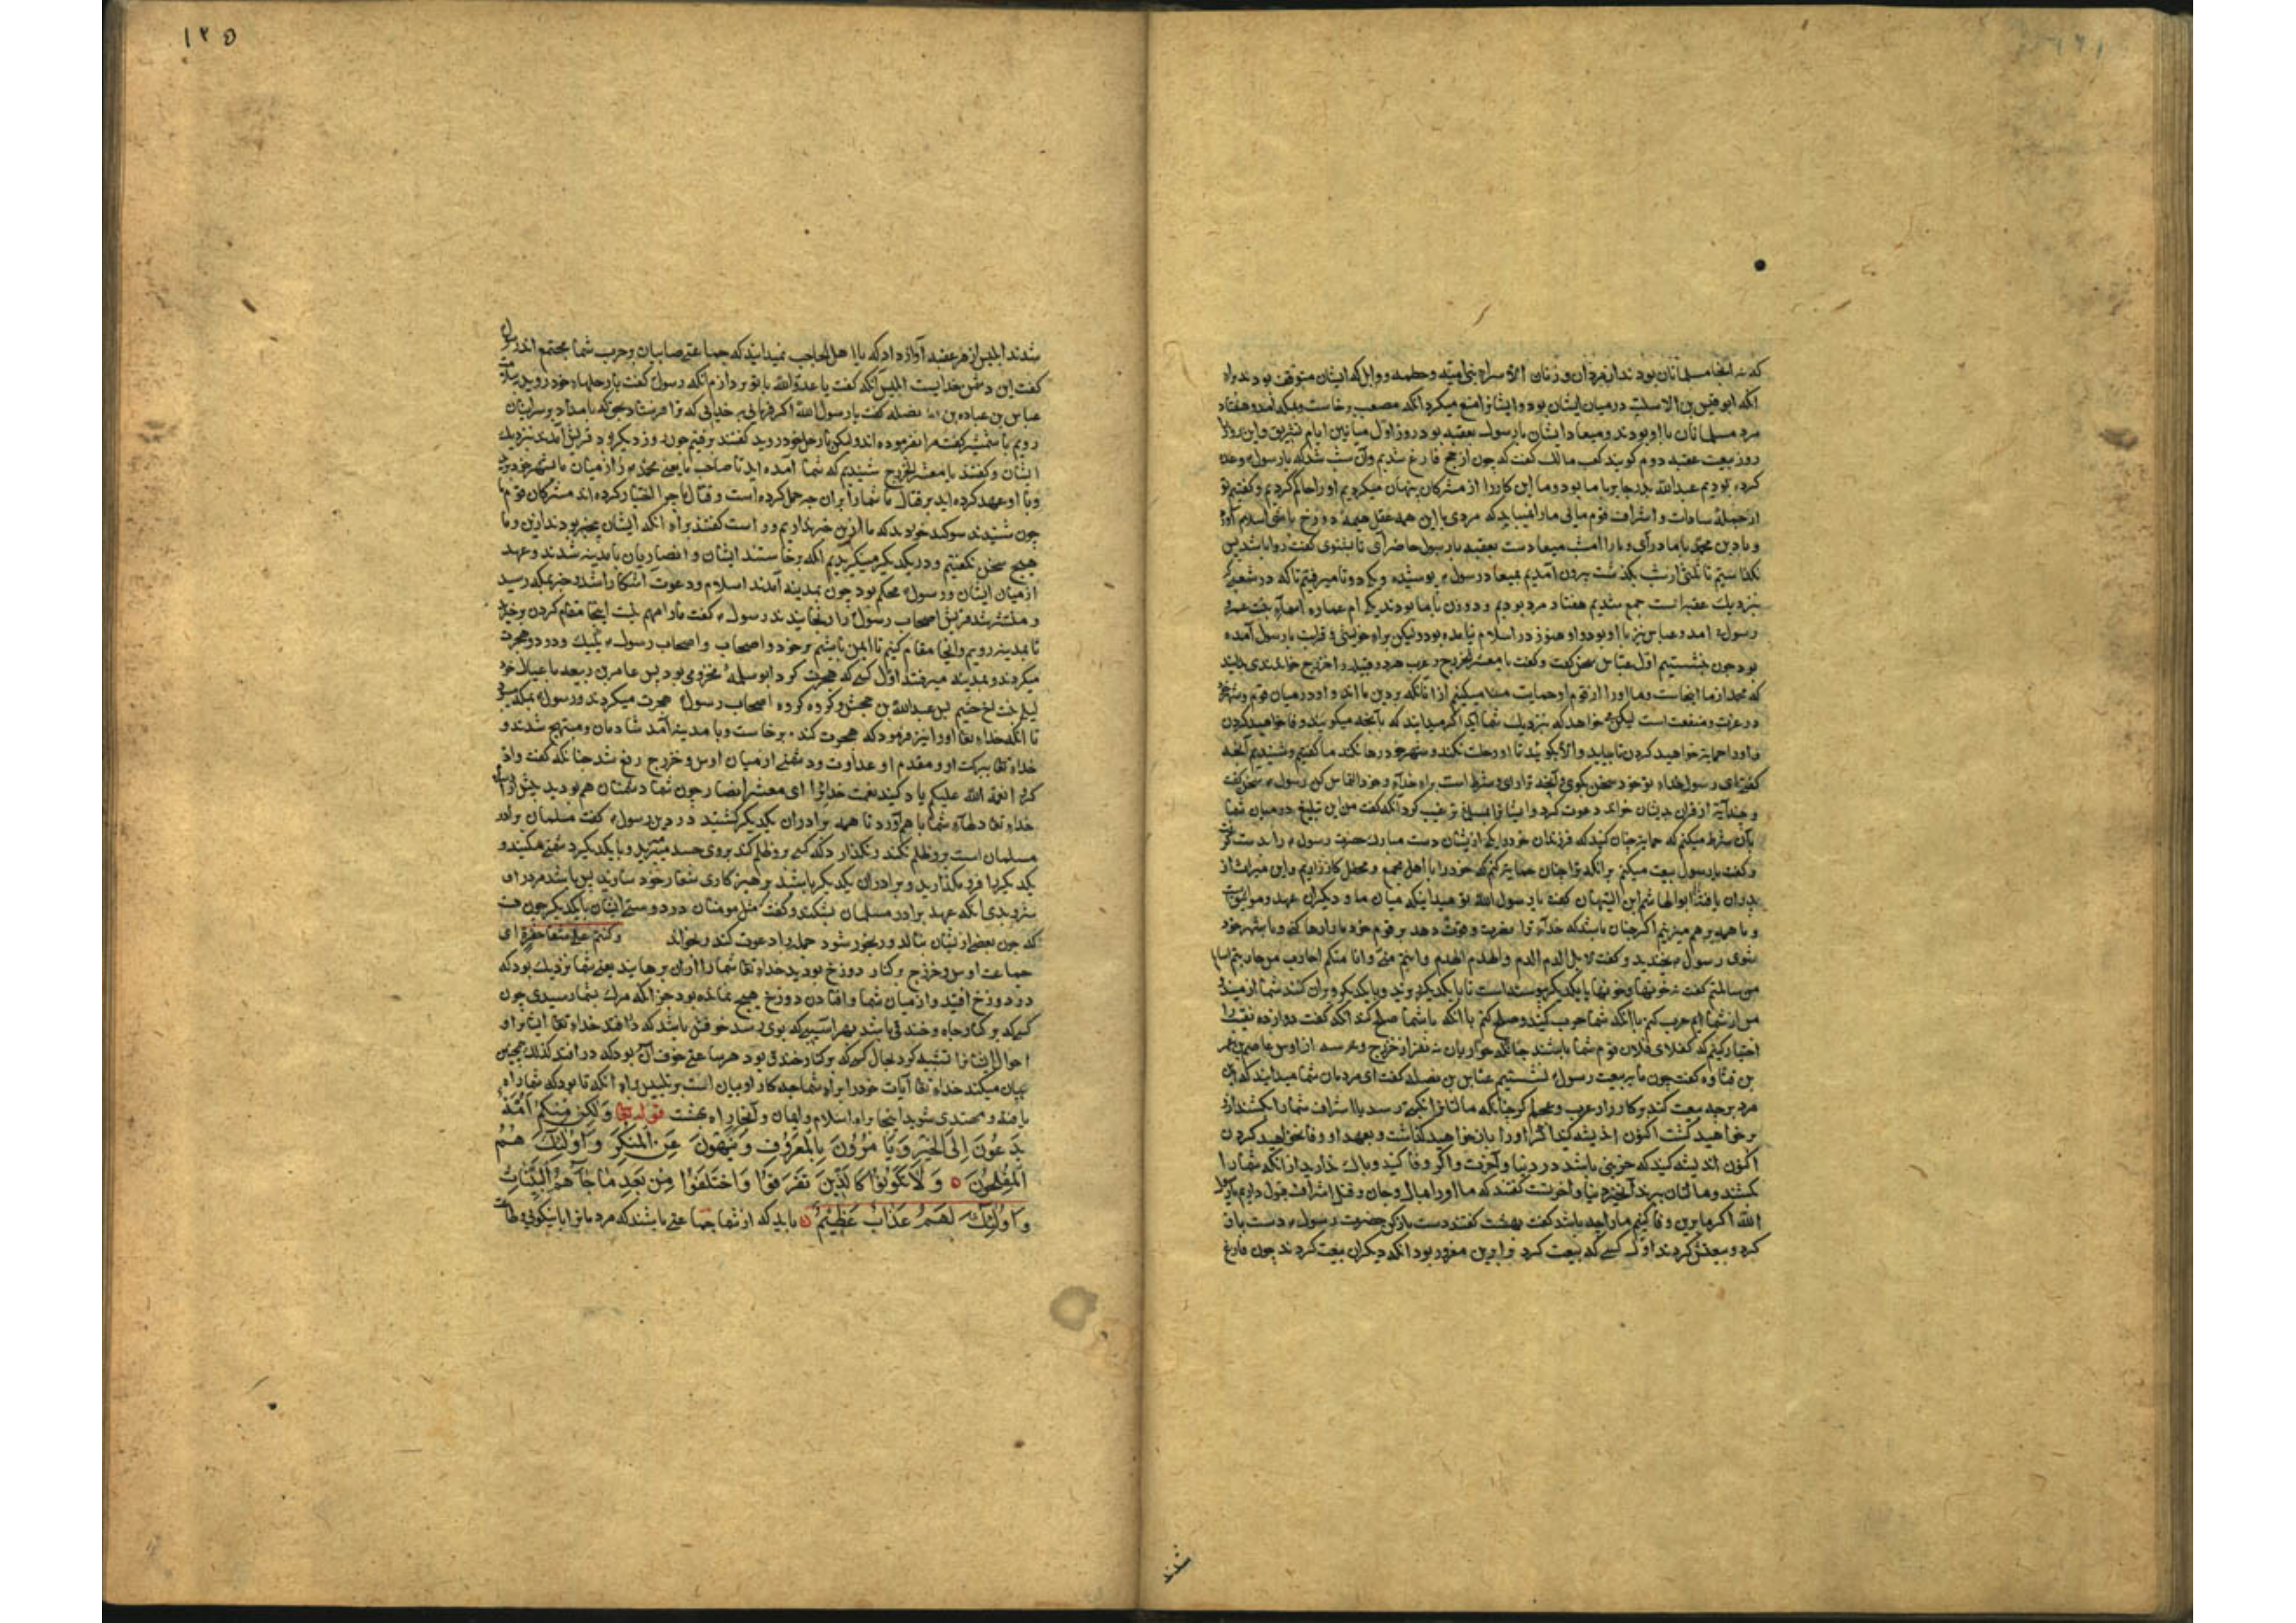 که نه آنجا مسلمانان بودند از مردان و زنان الا سرای بنی امیّه و حطمه و وایل که ایشان متوقف بودند برای
آنکه ابو قیس بن الاسلت در میان ایشان بود و ایشانرا منع میکرد آنکه مصعب برخاست و بمکه آمد و هفتاد
مرد مسلمانان با او بودند و میعاد ایشان با رسول بعقبه بود در روز اول میانین ایام تشریق و این روز را
روز بیعت عقبه دوم گویند کعب مالک گفت که چون از حج فارغ شدیم و آن شب شد که با رسول وعده
کرده بودیم عبدالله پدر جابر با ما بود و ما این کار را از مشرکان پنهان میکردیم او را حاکم کردیم و گفتیم تو
از جمله سادات و اشراف قوم مائی ما را نمیباید که مردی با این همه عقل هیمه دوزخ باشی اسلام آور
و با دین محمد با ما در آی و ما را امشب میعادست بعقبه با رسول حاضر آی تا بشنوی گفت روا باشد پس
بگذاشتیم تا ثلثی از شب بگذشت بیرون آمدیم بمیعاد رسول پوشیده و یک دو تا میرفتیم تا که در شعبی که
بنزدیک عقبه است جمع شدیم هفتاد مرد بودیم و دو زن با ما بودند یکی ام عماره
رسول آمد و عباس نیز با او بود و او هنوز در اسلام نیامده بود ولیکن برای خویشی و قرابت با رسول آمده
بود چون بنشستیم اول عباس سخن گفت و گفت یا معشر الخزرج و عرب هر دو قبیله را خزرج خوانندی
که محمد از ما اینجاست و ما او را از قوم او حمایت میکنیم از آنانکه بر دین ما اند و او در میان قوم و شهر خود
در عزت و منفعت است لیکن میخواهد که بنزدیک شما آید اگر میدانید که بآنچه میگویید وفا خواهید کردن
و او را حمایت خواهید کردن تا بیاید و الا بگویید تا او رحلت نکند و شهر خود رها نکند ما گفتیم و شنیدیم آنچه
گفتی ای رسول خدا تو خود سخن بگوی و آنچه ترا رای و شرط است برای خدا و خود التماس کن رسول سخن گفت
و چند آیه از قرآن بدیشان خواند و دعوت کرد و ایشانرا باسلام ترغیب کرد آنکه گفت من این تبلیغ در میان شما
بآن شرط میکنم که حمایت چنان کنید که فرزندان خود را یکی از ایشان دست مبارک حضرت رسول را بدست گرفت
و گفت یا رسول بیعت میکنم بر آنکه ترا چنان حمایت کنم که خود را ما اهل جمع و محفل کارزاریم و این میراث از
پدران یافته ابوالهاشم ابن التیهان گفت یا رسول الله تو میدانی که میان ما و دیگران عهد و مواثیق است
و ما همه بر هم میزنیم اگر چنان باشد که خدای ترا نصرت و قوت دهد بر قوم خود ما را رها کنی و با شهر خود
شوی رسول بخندید و گفت لا بل الدم الدم و الهدم الهدم و انتم منی و انا منکم احارب من حاربتم اسالم
من سالمتم گفت نه خونها و خونها بایکدیگر پیوسته است
من از شما ایم حرب کنم با آنکه شما حرب کنید و صلح کنم با آنکه با شما صلح کند آنکه گفت دوازده نقیب را
اختیار کنیم که کفلای فلان قوم شما باشند چنانکه حواریان نه نفر از خزرج و سه از اوس عاصم بن عمر
بن قتاده گفت چون ما ببیعت رسول نشستیم عباس بن نضله گفت ای مردمان شما میدانید که این
مرد بر چه بیعت کند بر کارزار عرب و عجم اگر چنانکه مالتانرا نکبتی رسد یا اشراف شما را بکشند او را
بر خواهید گشت اکنون اندیشه کنید اگر او را باز خواهید گذاشت و بعهد او وفا نخواهید کردن
اکنون اندیشه کنید که خزیی باشد در دنیا و آخرت و اگر وفا کنید و باک ندارید از آنکه شما را
بکشند و مالتان ببرند آن خیر دنیا و آخرتست گفتند که ما او را بمال و جان و قتل اشراف قبول داریم یا رسول
الله اگر ما برین وفا کنیم ما را چه باشد گفت بهشت گفتند دست باز کن حضرت رسول دست باز
کرد و بیعتش کردند اول کسی که بیعت کرد برا بن معرور بود آنکه دیگران بیعت کردند چون فارغ
شدند
۱۲۵
شدند ابلیس از سر عقبه آواز داد که یا اهل الجباجب نمیدانید که جماعتی صابیان بر حرب شما مجتمع اند رسول
گفت این دشمن خداست ابلیس آنکه گفت یا عدو الله با تو پردازم آنکه رسول گفت با رحلهای خود روید
عباس بن عباده بن نضله گفت یا رسول الله اگر فرمایی بخدایی که ترا فرستاد بحق که بامداد بر سر ایشان
رویم با شمشیر گفت مرا نفرموده اند ولیکن با رحل خود روید گفتند برفتیم چون روز دیگر بود قریش آمدند بنزدیک
ایشان و گفتند یا معشر الخزرج شنیدیم که شما آمده اید تا صاحب ما یعنی محمد را از میان ما بشهر خود برید
و با او عهد کرده اید بر قتال ما شما را بر آن چه حمل کرده است و قتال ما چرا اختیار کرده اند مشرکان قوم ما
چون شنیدند سوگند خوردند که ما ازین خبر نداریم و راست گفتند برای آنکه ایشان بیخبر بودند ازین و ما
هیچ سخن نگفتیم و در یکدیگر مینگریدیم آنکه برخاستند ایشان و انصاریان با مدینه شدند و عهد
از میان ایشان و رسول محکم بود چون بمدینه آمدند اسلام و دعوت آشکارا شد و خبر بمکه رسید
و منتشر شد قریش اصحاب رسول را رنجانیدند رسول گفت ما را مهم نیست اینجا مقام کردن برخیزید
تا بمدینه رویم و آنجا مقام کنیم تا ایمن باشیم بر خود و اصحاب و اصحاب رسول یک یک و دو دو هجرت
میکردند و بمدینه میرفتند اول کسی که هجرت کرد ابو سلمه مخزومی بود پس عامر بن ربیعه با عیال خود
لیلی بنت ابی خثیم پس عبدالله بن جحش و گروه گروه اصحاب رسول هجرت میکردند و رسول بمکه
تا آنکه خدای تعا او را نیز فرمود که هجرت کند برخاست و با مدینه آمد شادمان و مبتهج شدند و
خدای تعا ببرکت او و مقدم او عداوت و دشمنی از میان اوس و خزرج رفع شد چنانکه گفت و اذ
کروا نعمة الله علیکم یاد کنید نعمت خدای را ای معشر انصار چون شما دشمنان هم بودید
خدای تعا دلهای شما با هم آورد تا همه برادران یکدیگر گشتید در دین رسول گفت مسلمان برادر
مسلمان است برو ظلم نکند و نگذارد که کسی برو ظلم کند بروی حسد مبرید و با یکدیگر دشمنی مکنید و
یکدیگر را فرو مگذارید و برادران یکدیگر باشید پرهیزکاری شعار خود سازید پس باشد مرد را ای
بنزد بدی آنکه عهد برادر مسلمان بشکند و گفت مثل مومنان در دوستی ایشان با یکدیگر چون تنست
که چون بعضی از ایشان بنالد و رنجور شود جمله را دعوت کند و بخواند وکنتم علی شفا حفرة ای
جماعت اوس و خزرج بر کنار دوزخ بودید خدای تعا شما را از آن برهانید یعنی شما نزدیک بود که
در دوزخ افتید و از میان شما و افتادن دوزخ هیچ نمانده بود جز آنکه مرگ بشما رسیدی چون
کسی که بر کنار چاه و خندقی باشد بهر آسیبی که بوی رسد خوفش باشد که در افتد خدای تعا ایشانرا و
احوال ایشانرا تشبیه کرد بحال کسی که بر کنار خندق بود هر ساعتی خوف آن بود که در افتد کذلک همچنین
بیان میکند خدای تعا آیات خود را برای شما چه کار او بیان است بر تلبیس برای آنکه تا بود که شما راه
یافته و مهتدی شوید اینجا براه اسلام و ایمان و آنجا راه بهشت قوله تعا ولتکن منکم امّة
یَدْعُونَ اِلَى الْخَیْرِ وَیَأمُرُونَ بِالْمَعْرُوفِ وَیَنْهَوْنَ عَنِ الْمُنْکَرِ وَاُولٰئِکَ هُمُ
الْمُفْلِحُونَ وَلاَ تَکُونُوا کَالَّذِینَ تَفَرَّقُوا وَاخْتَلَفُوا مِنْ بَعْدِ مَا جَآءَهُمُ الْبَیِّنَاتُ
وَاُولٰئِکَ لَهُمْ عَذَابٌ عَظِیْمٌ باید که از شما جماعتی باشند که مردمانرا با نیکوئی و طاعت